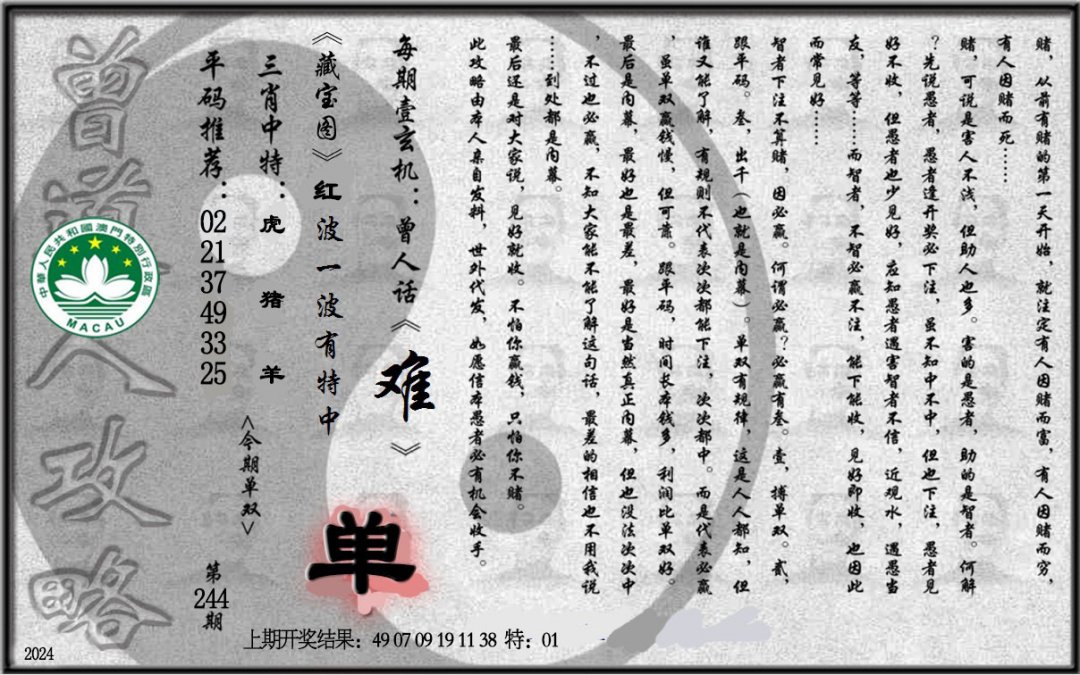 赌，从前有赌的第一天开始，就注定有人因赌而富，有人因赌而穷，
有人因赌而死……
赌，可说是害人不浅，但助人也多。害的是愚者，助的是智者。何解
？先说愚者，愚者逢开奖必下注，虽不知中不中，但也下注，愚者见
好不收，但愚者也少见好，应知愚者遇害智者不信，近观水，遇愚当
友，等等……而智者，不智必赢不注，能下能收，见好即收，也因此
而常见好……
智者下注不算赌，因必赢。何谓必赢？必赢有叁。壹，搏单双。贰，
跟平码。叁，出千（也就是内幕）。单双有规律，这是人人都知，但
谁又能了解，有规则不代表次次都能下注，次次都中。而是代表必赢
，虽单双赢钱慢，但可靠。跟平码，时间长本钱多，利润比单双好。
最后是内幕，最好也是最差，最好是当然真正内幕，但也没法次次中
，不过也必赢，不知大家能不能了解这句话，最差的相信也不用我说
……到处都是内幕。
最后还是对大家说，见好就收。不怕你赢钱，只怕你不赌。
此攻略由本人亲自发料，世外代发，如愿信本愚者必有机会收手。
每期壹玄机：曾人话《难》
《藏宝图》红波一波有特中
三肖中特：虎 猪 羊
平码推荐：02 21 37 49 33 25
<今期单双>
单
第244期
曾道人攻略
中華人民共和國澳門特別行政區
MACAU
上期开奖结果：49 07 09 19 11 38 特：01
2024